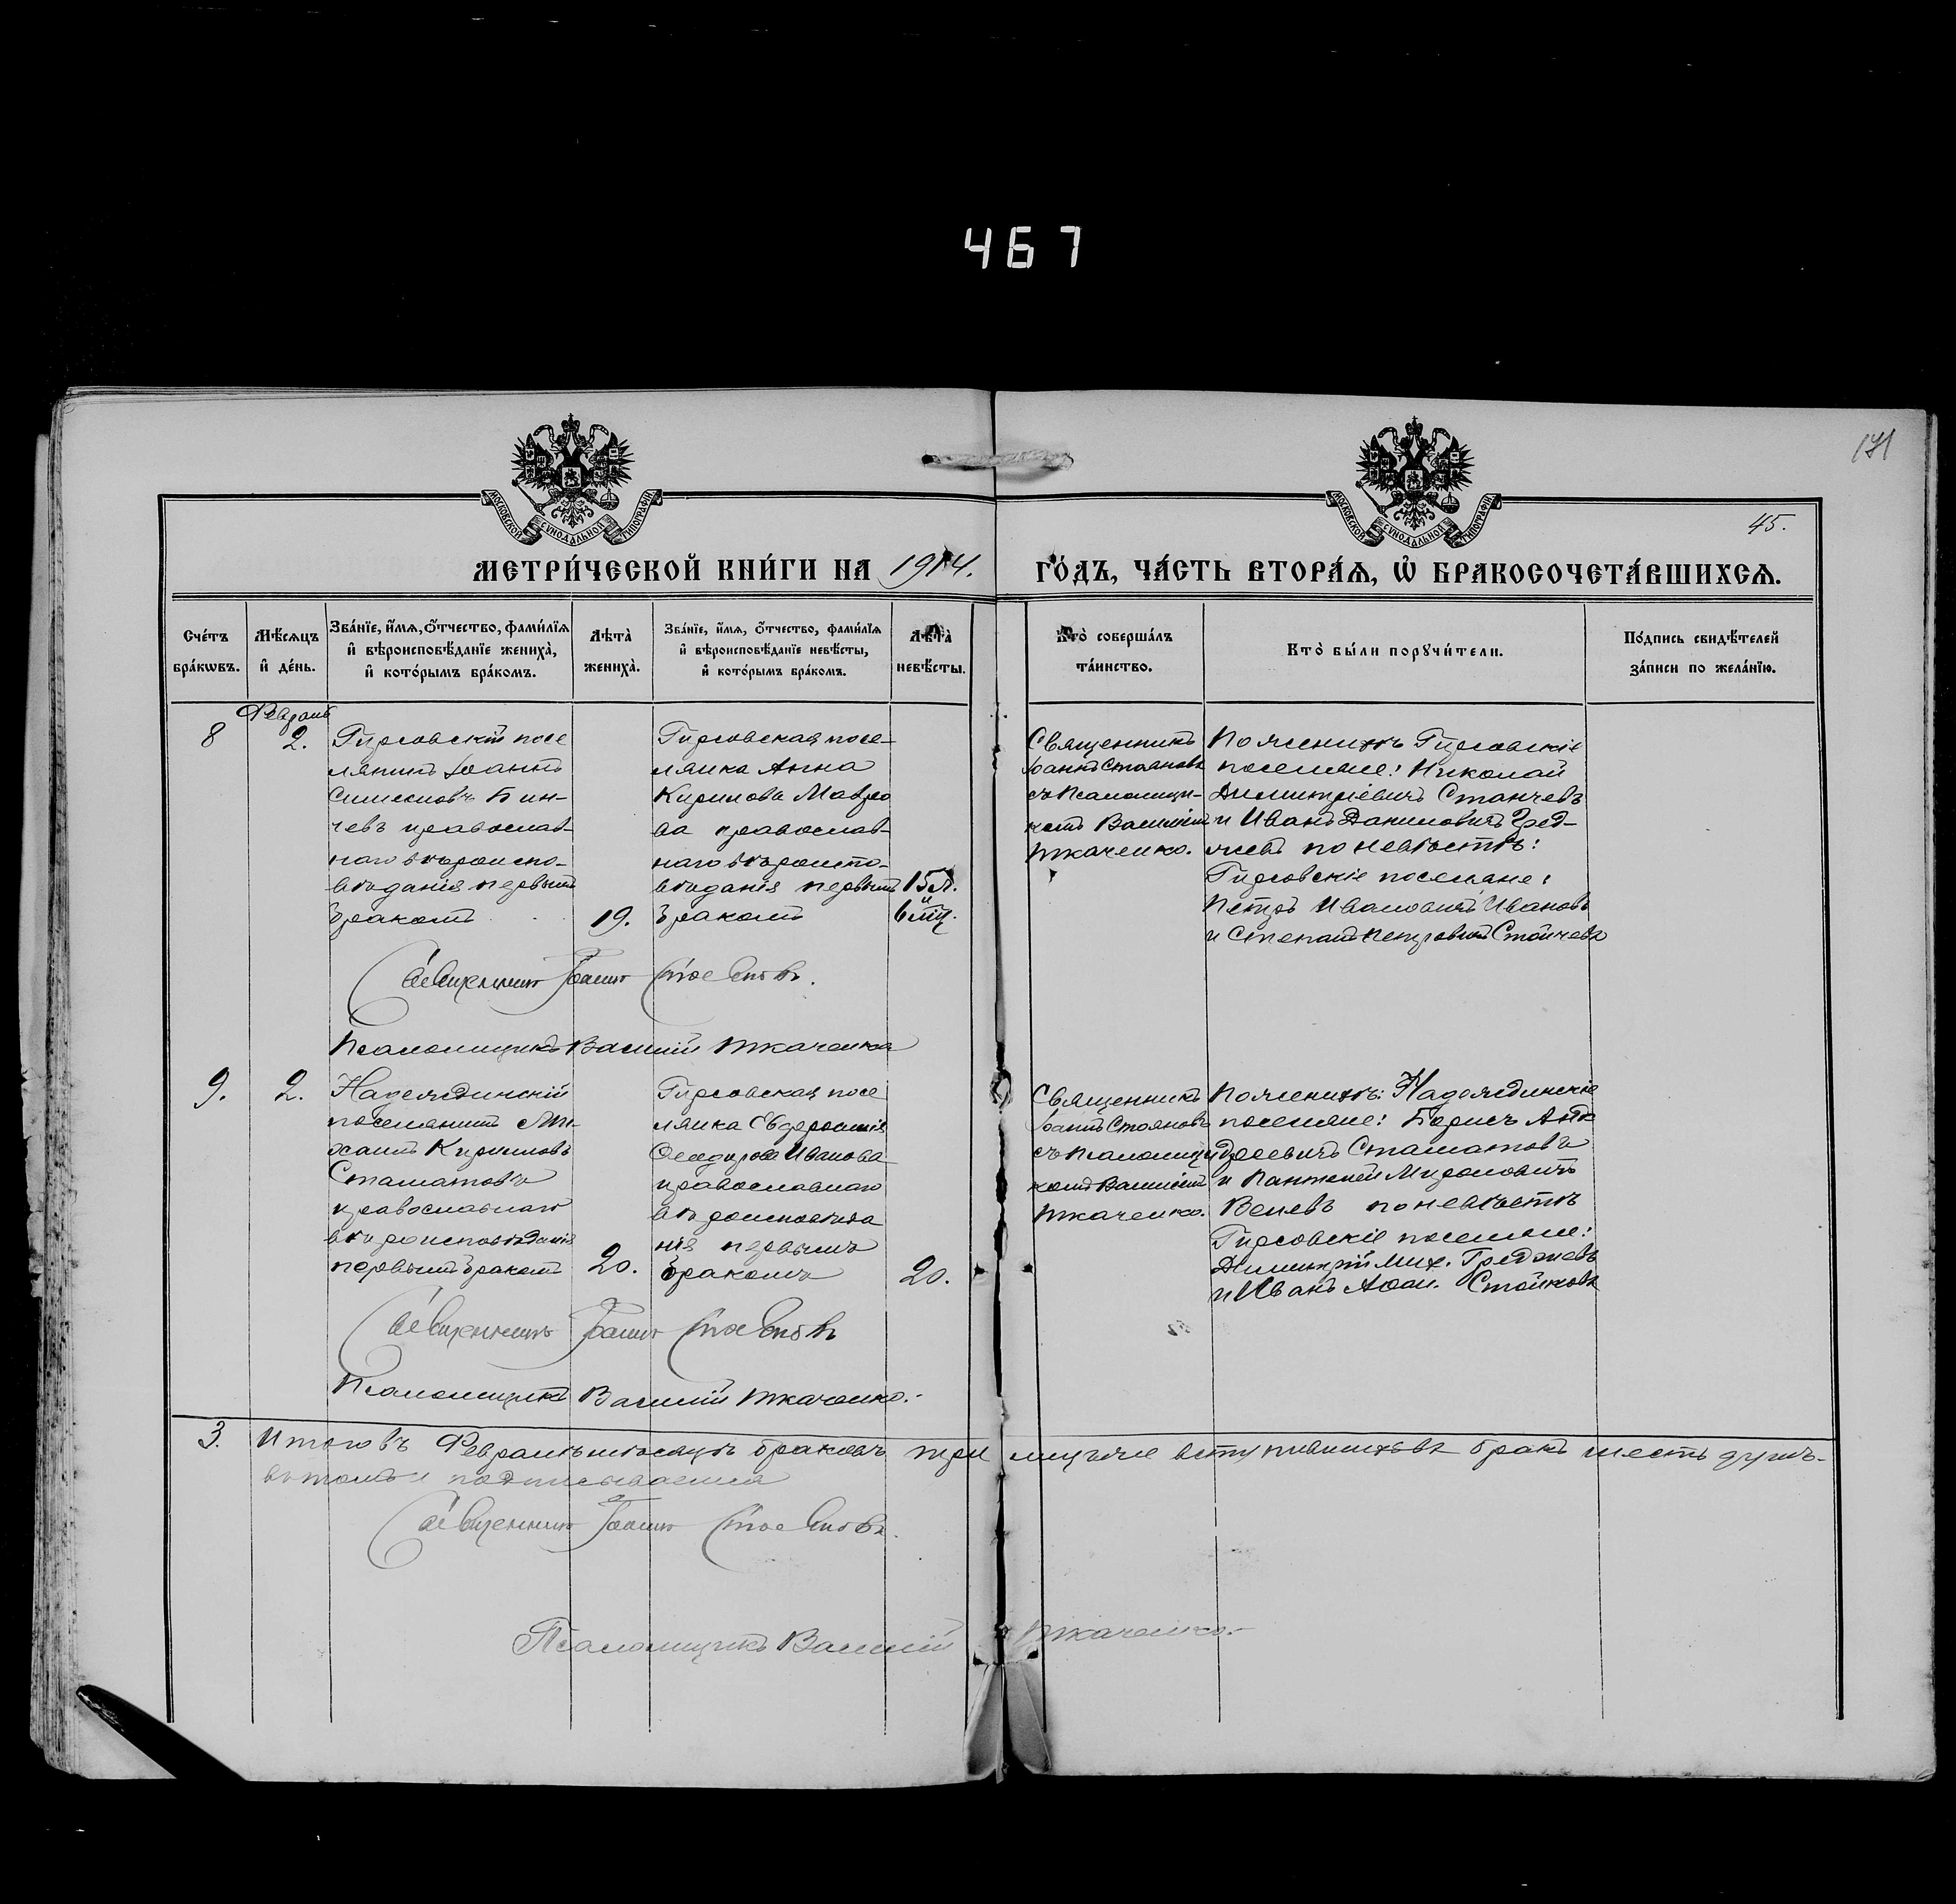 467
171
45.
МОСКОВСКОЙ СУНОДАЛЬНОЙ ТИПОГРАФІИ
МОСКОВСКОЙ СУНОДАЛЬНОЙ ТИПОГРАФІИ
МЕТРИ́ЧЕСКОЙ КНИ́ГИ НА 1914. ГО́ДЪ, ЧА́СТЬ ВТОРА́Ѧ, Ѡ҆ БРАКОСОЧЕТА́ВШИХСѦ.
Сче́тъ бра́кѡвъ.
Мѣ́сѧцъ и҆ де́нь.
Зва́нїе, и҆́мѧ, ѻ҆́тчество, фами́лїѧ
и҆ вѣроисповѣ́данїе жениха̀,
и҆ кото́рымъ бра́комъ.
Лѣта̀ жениха̀.
Зва́нїе, и҆́мѧ, ѻ҆́тчество, фами́лїѧ
и҆ вѣроисповѣ́данїе невѣ́сты,
и҆ кото́рымъ бра́комъ.
Лѣта̀ невѣ́сты.
Кто̀ соверша́лъ
та́инство.
Кто̀ бы́ли порꙋчи́тели.
По́дпись свидѣ́телей
за́писи по жела́нїю.
8
Февраль
2.
Гирсовскій посе
лянинъ Іоаннъ
Симеоновъ Бин-
чевъ православ-
наго вѣроиспо-
вѣданія первымъ
бракомъ
19.
Гирсовская посе-
лянка Анна
Кирилова Мавро
ва православ-
наго вѣроиспо-
вѣданія первымъ
бракомъ
15 л.
и
6 мц.
Священникъ
Іоаннъ Стояновъ
съ Псаломщи-
комъ Василіемъ
Ткаченко.
По женихѣ Гирсовскіе
поселяне: Николай
Димитріевичъ Станчевъ
и Иванъ Даниловичъ
по невѣстѣ:
Гирсовскіе поселяне:
Петръ Ивановичъ Ивановъ
и Степанъ Петровичъ Стойчевъ
Священникъ Іоаннъ Стояновъ.
Псаломщикъ Василій Ткаченко
9.
2.
Надеждинскій
поселянинъ Ми-
хаилъ Кирилловъ
Стаматовъ
православнаго
вѣроисповѣданія
первымъ бракомъ
20.
Гирсовская посе
лянка Евфросинія
Феодорова Иванова
православнаго
вѣроисповѣда
нія первымъ
бракомъ
20.
Священникъ
Іоаннъ Стояновъ
съ Псаломщи
комъ Василіемъ
Ткаченко.
По женихѣ: Надеждинскіе
поселяне: Борисъ Анд
реевичъ Стаматовъ
и Пантелей Мироновичъ
Велевъ по невѣстѣ
Гирсовскіе поселяне:
Димитрій Мих. Греджевъ
и Иванъ Стойковъ
Священникъ Іоаннъ Стояновъ
Псаломщикъ Василій Ткаченко.-
3. Итого въ Февралѣ мѣсяцѣ браковъ три лицъ же вступившихъ въ бракъ шесть душъ-
въ томъ и подписываемся
Священникъ Іоаннъ Стояновъ.
Псаломщикъ Василій Ткаченко.-